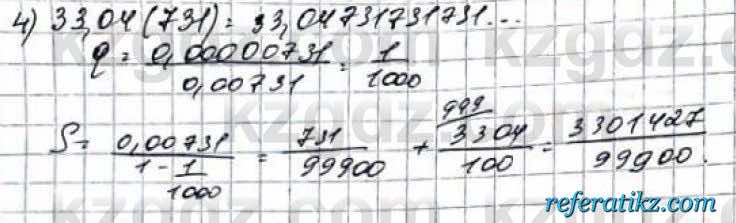 4) 33,04(731) = 33,04731731731...
q = 0,00000731 / 0,00731 = 1/1000
S = 0,00731 / (1 - 1/1000) = 731/99900 + 999 3304/100 = 3301427/99900.
referatikz.com